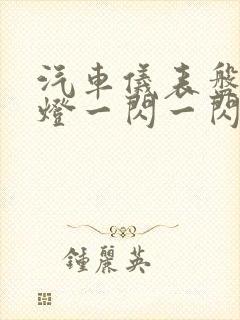 汽車儀表盤
燈一閃一閃
鍾麗英